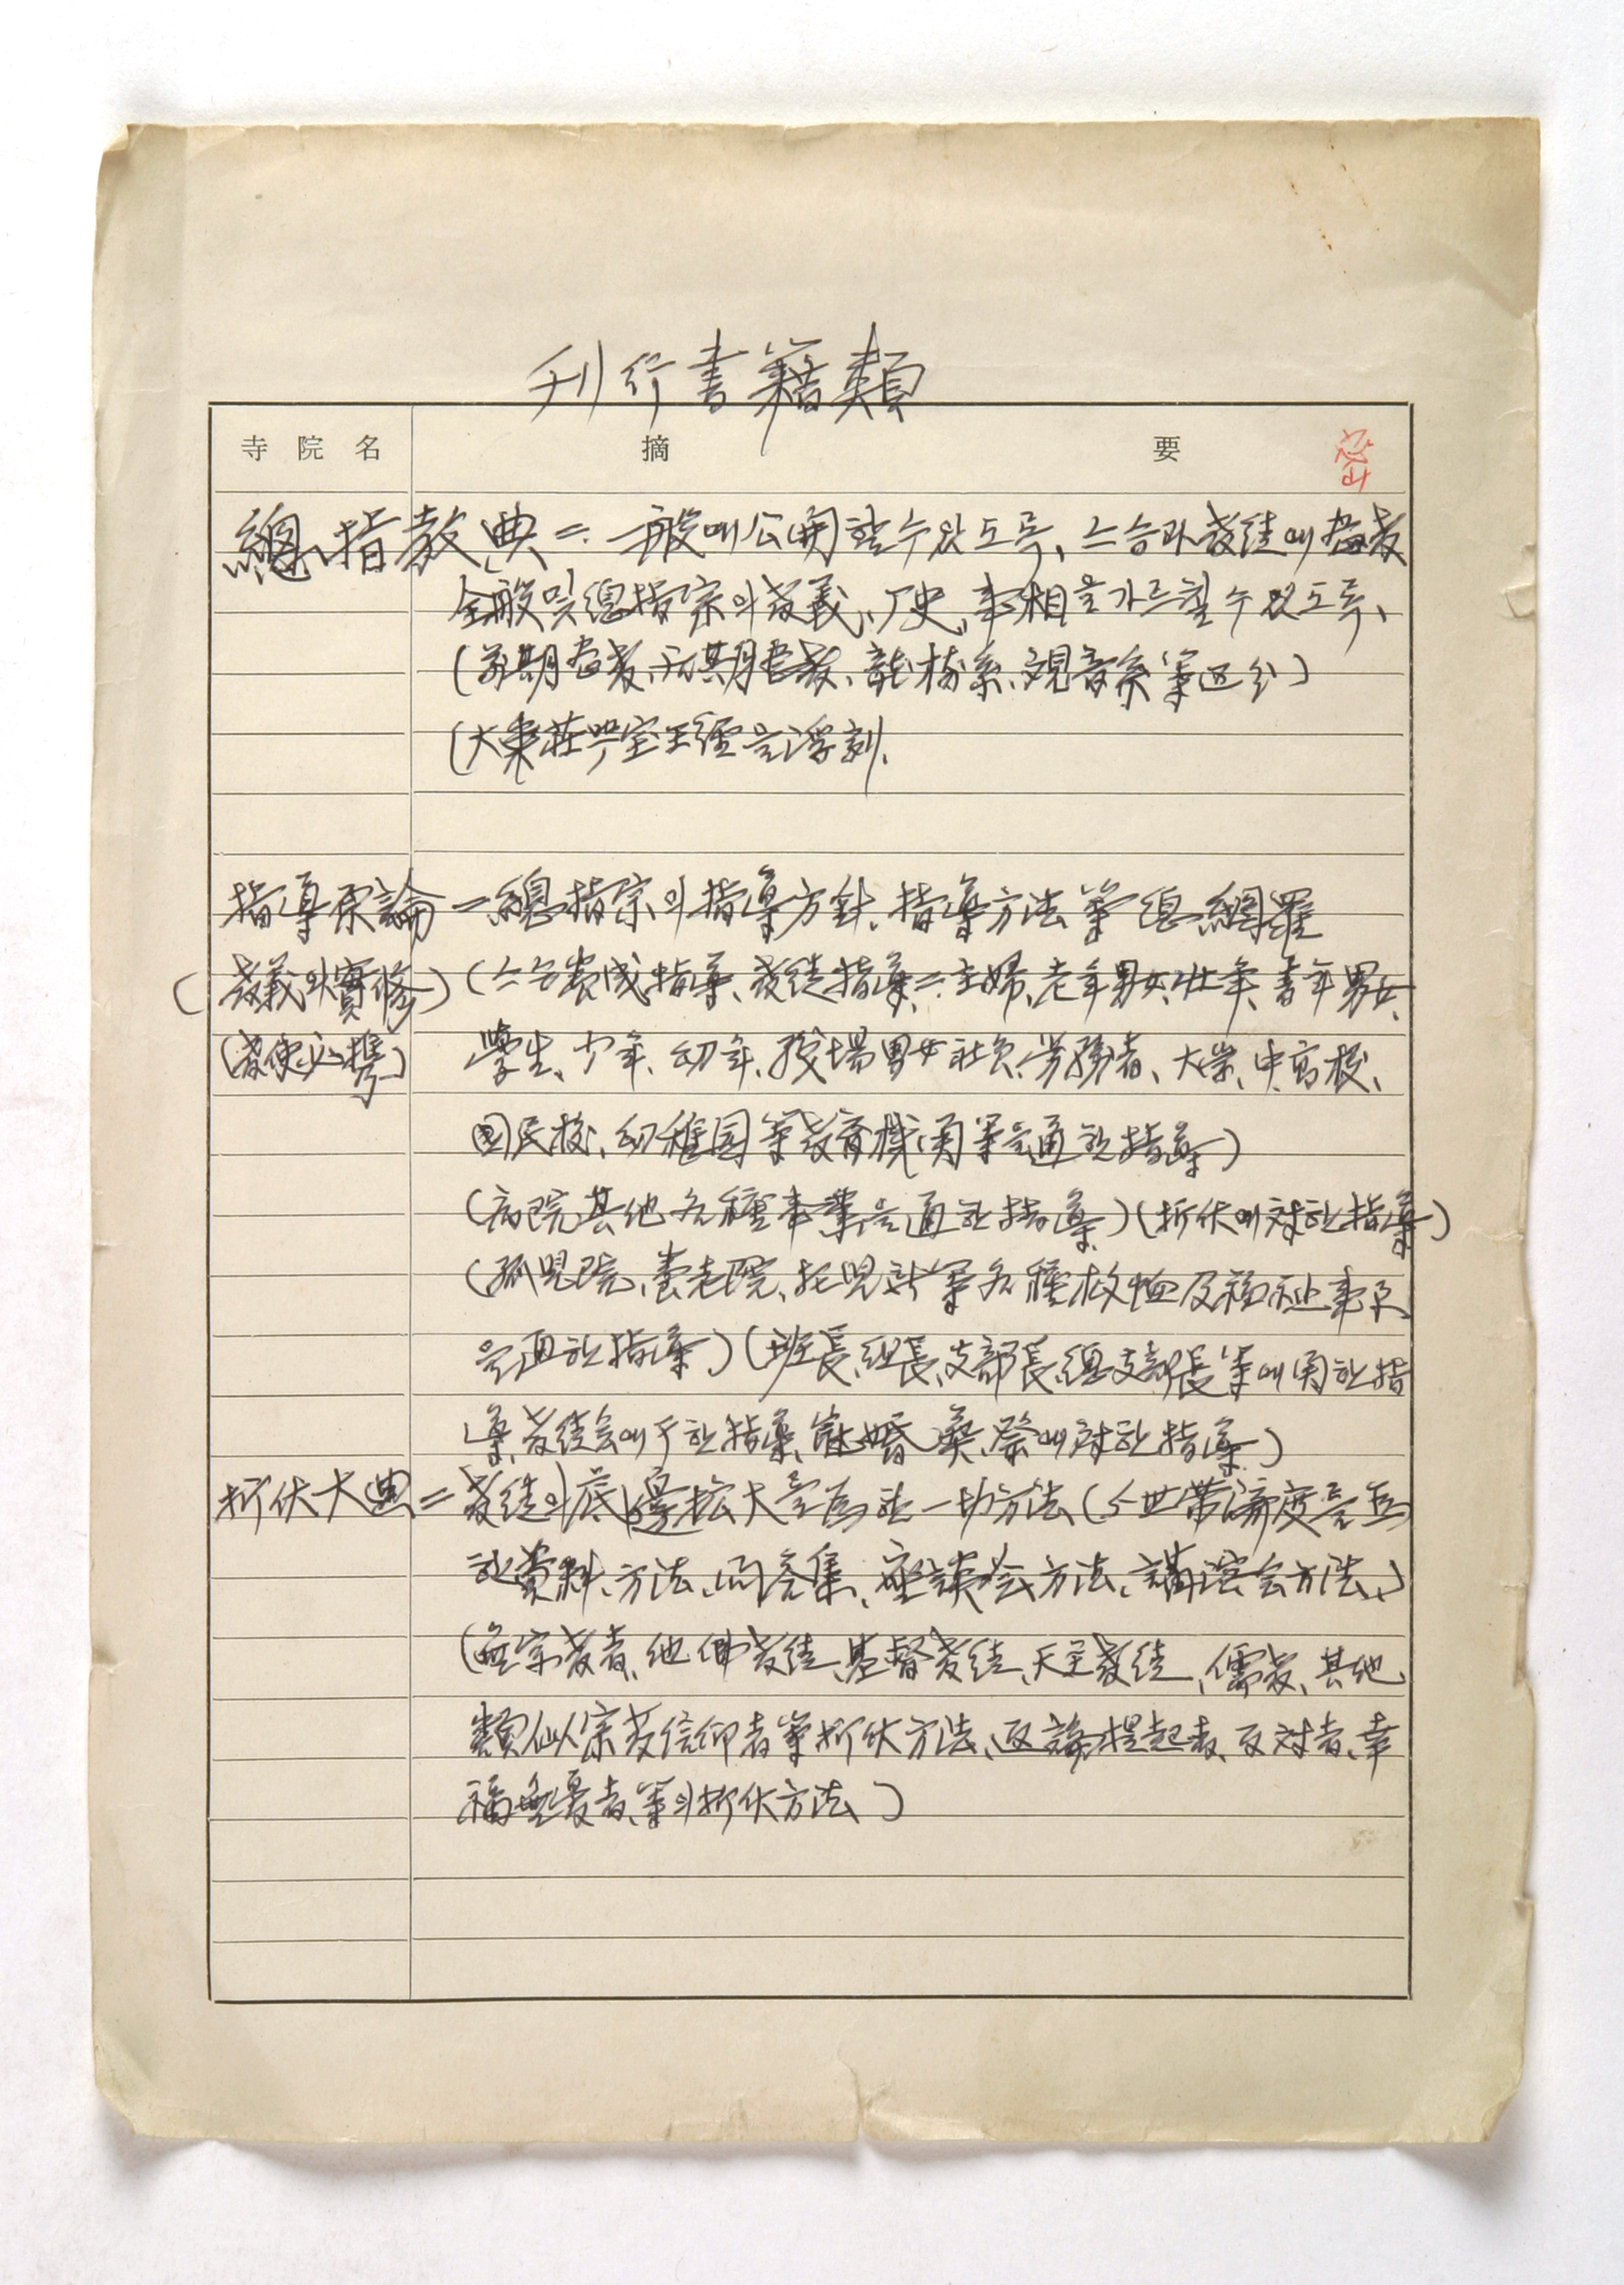 刊行書籍類
寺院名 摘要
總指教典 = 一般에 公開할 수 있도록, 스승과 敎徒에 密敎
全般 및 總指宗의 敎義, 厂史, 事相을 가르칠 수 있도록,
(前期密敎, 后期密敎, 龍樹系, 觀音系 等 區分)
(大乘莊嚴宝王經을 浮刻,
指導原論 = 總指宗의 指導方針, 指導方法 等 總網羅
(敎義와 實修) (스승養成指導, 敎徒指導 = 主婦, 老年男女, 壯年, 靑年男女,
(敎使必携) 學生, 少年, 幼年, 職場男女社員, 労務者, 大学, 中高校,
国民校, 幼稚園 等 敎育機関 等을 通한 指導)
(病院 其他 各種事業을 通한 指導) (折伏에 対한 指導)
(孤児院, 養老院, 托児所 等 各種 救恤 及 福祉事業
을 通한 指導) (班長, 組長, 支部長, 總支部長 等에 関한 指
導, 敎徒会에 于한 指導, 冠婚喪祭에 対한 指導)
折伏大典 = 敎徒의 底邊拡大를 爲한 一切方法 (全世帶濟度를 爲
한 資料, 方法, 问答集, 座談会方法, 講演会方法,)
(無宗敎者, 他佛敎徒, 基督敎徒, 天主敎徒, 儒敎, 其他
類似宗敎信仰者 等 折伏方法, 返論提起者, 反対者, 幸
福無憂者, 等의 折伏方法)